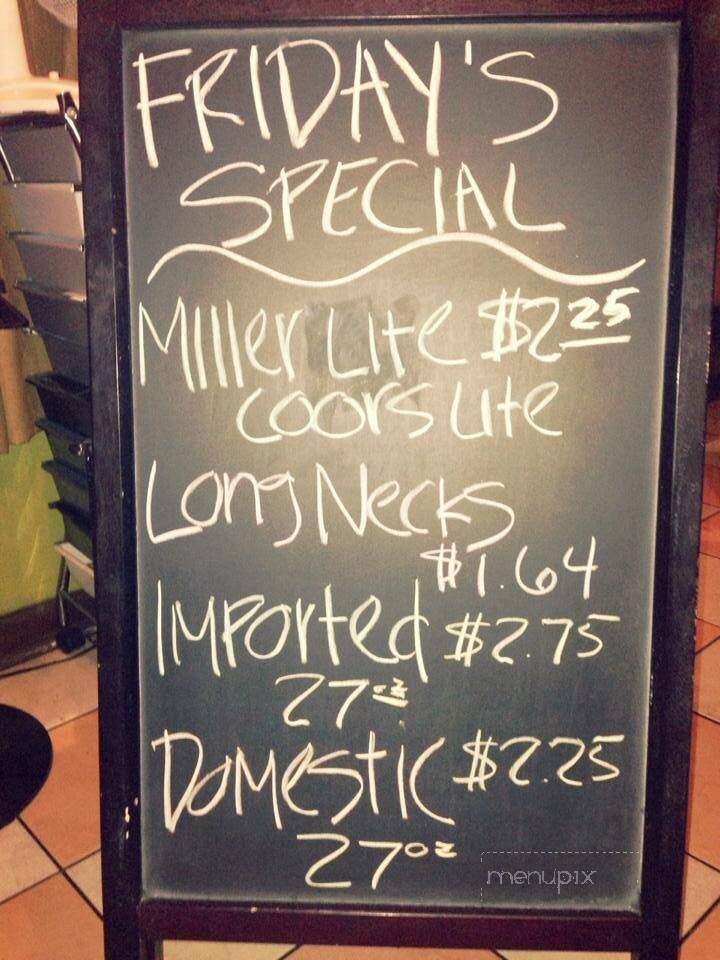 FRIDAY'S
SPECIAL
Miller Lite $2.25
Coors Lite
Long Necks
$1.64
Imported $2.75
27oz
Domestic $2.25
27oz
menupix